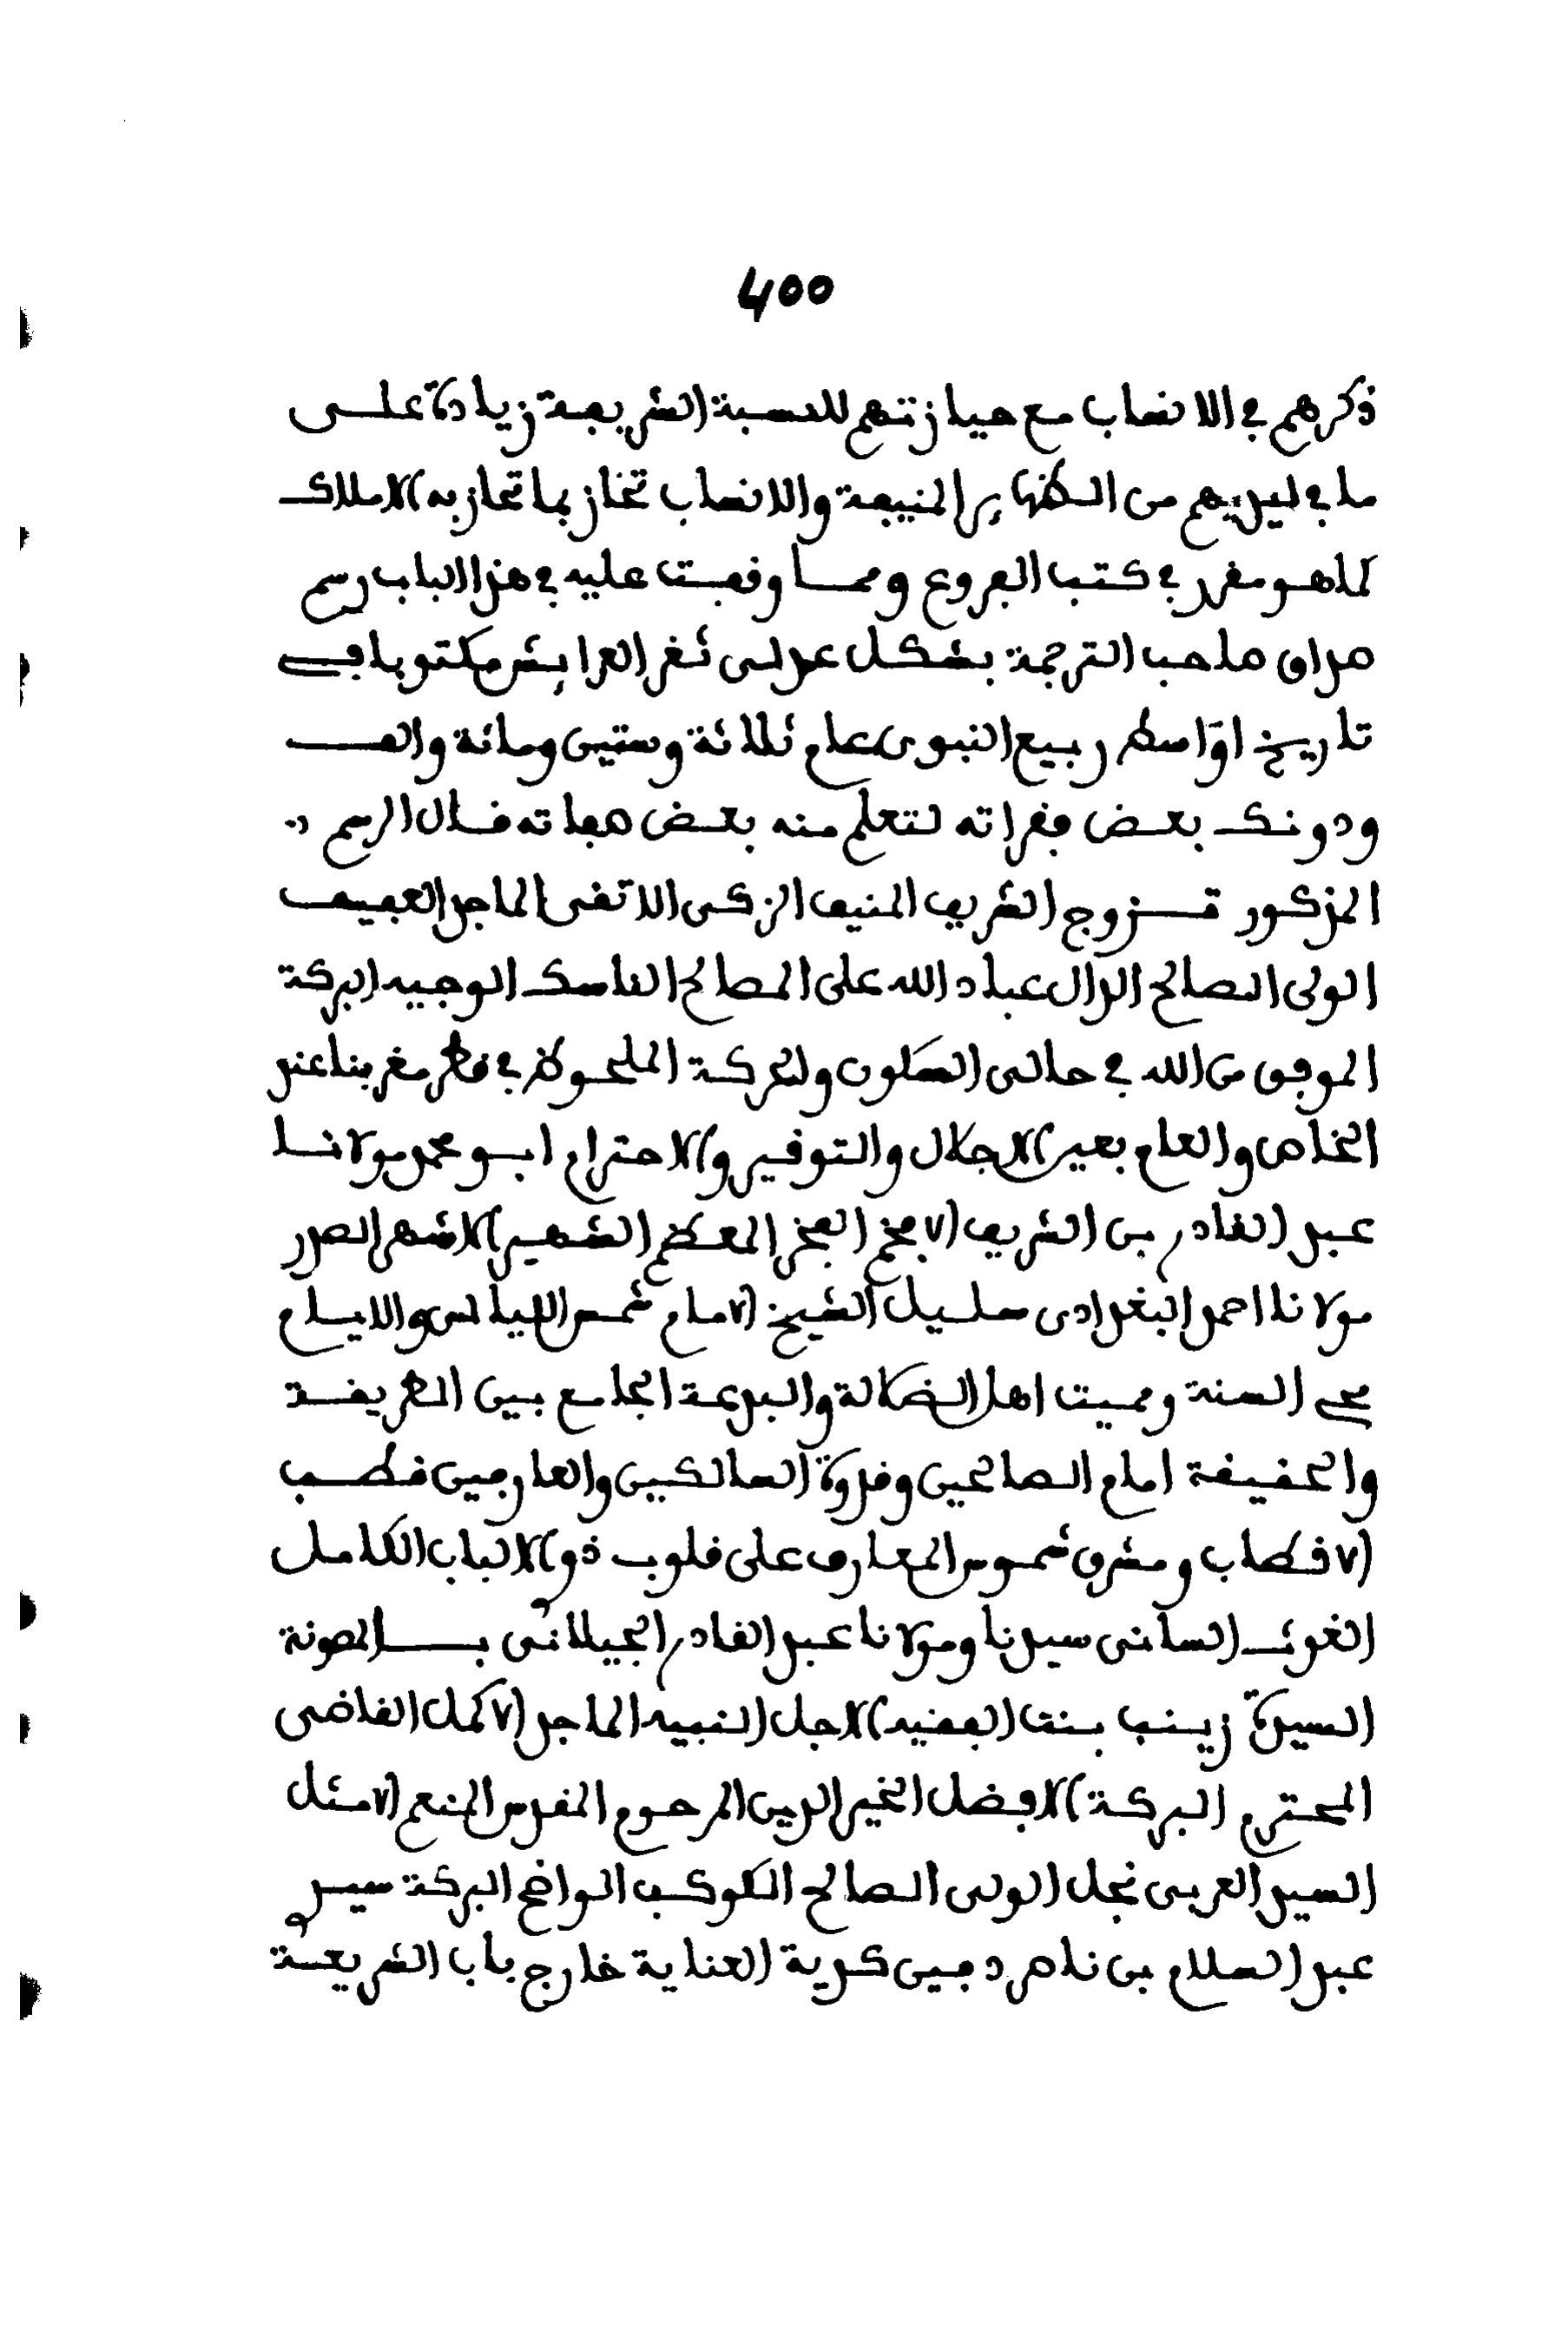 400
ذكرهم في الانساب مع حيازتهم للنسبة الشريفة زيادة على
ما في ايديهم من الظهاير المنيفة والانساب تحاز بما تحاز به الاملاك
كما هو مقرر في كتب الفروع ومما وقفت عليه في هذا الباب رسم
صداق صاحب الترجمة بشكل عدلى ثغر العرايش مكتوبا في
تاريخ اواسط ربيع النبوى عام ثلاثة وستين ومائة والف
ودونك بعض فقراته لتعلم منه بعض صفاته قال الرسم
المذكور تزوج الشريف المنيف الزكى الاتقى الماجد العفيف
الولى الصالح الدال عباد الله على المصالح الناسك الوجيه البركة
الموفق من الله في حالتى السكون والحركة الملحوظ في قطر مغربنا عند
الخاص والعام بعين الاجلال والتوقير والاحترام ابو محمد مولانا
عبد القادر بن الشريف الافخم الفخر المعظم الشهير الاشهر الصدر
مولانا احمد البغدادى سليل الشيخ الامام شمس الليالى والايام
محي السنة ومميت اهل الضلالة والبدعة الجامع بين الطريقة
والحقيقة امام الصالحين وقدوة السالكين والعارفين قطب
الاقطاب ومشرق شموس المعارف على قلوب ذو الالباب الكامل
الغوث السانى سيدنا ومولانا عبد القادر الجيلانى بالمصونة
السيدة زينب بنت الفقيه الاجل النبيه الماجد الاكمل القاضى
المحترم البركة الافضل الخير الدين المرحوم المقدس المنعم الامثل
السيد العربى نجل الولى الصالح الكوكب الواضح البركة سيد
عبد السلام بن ناصر دفين كدية العناية خارج باب الشريعة